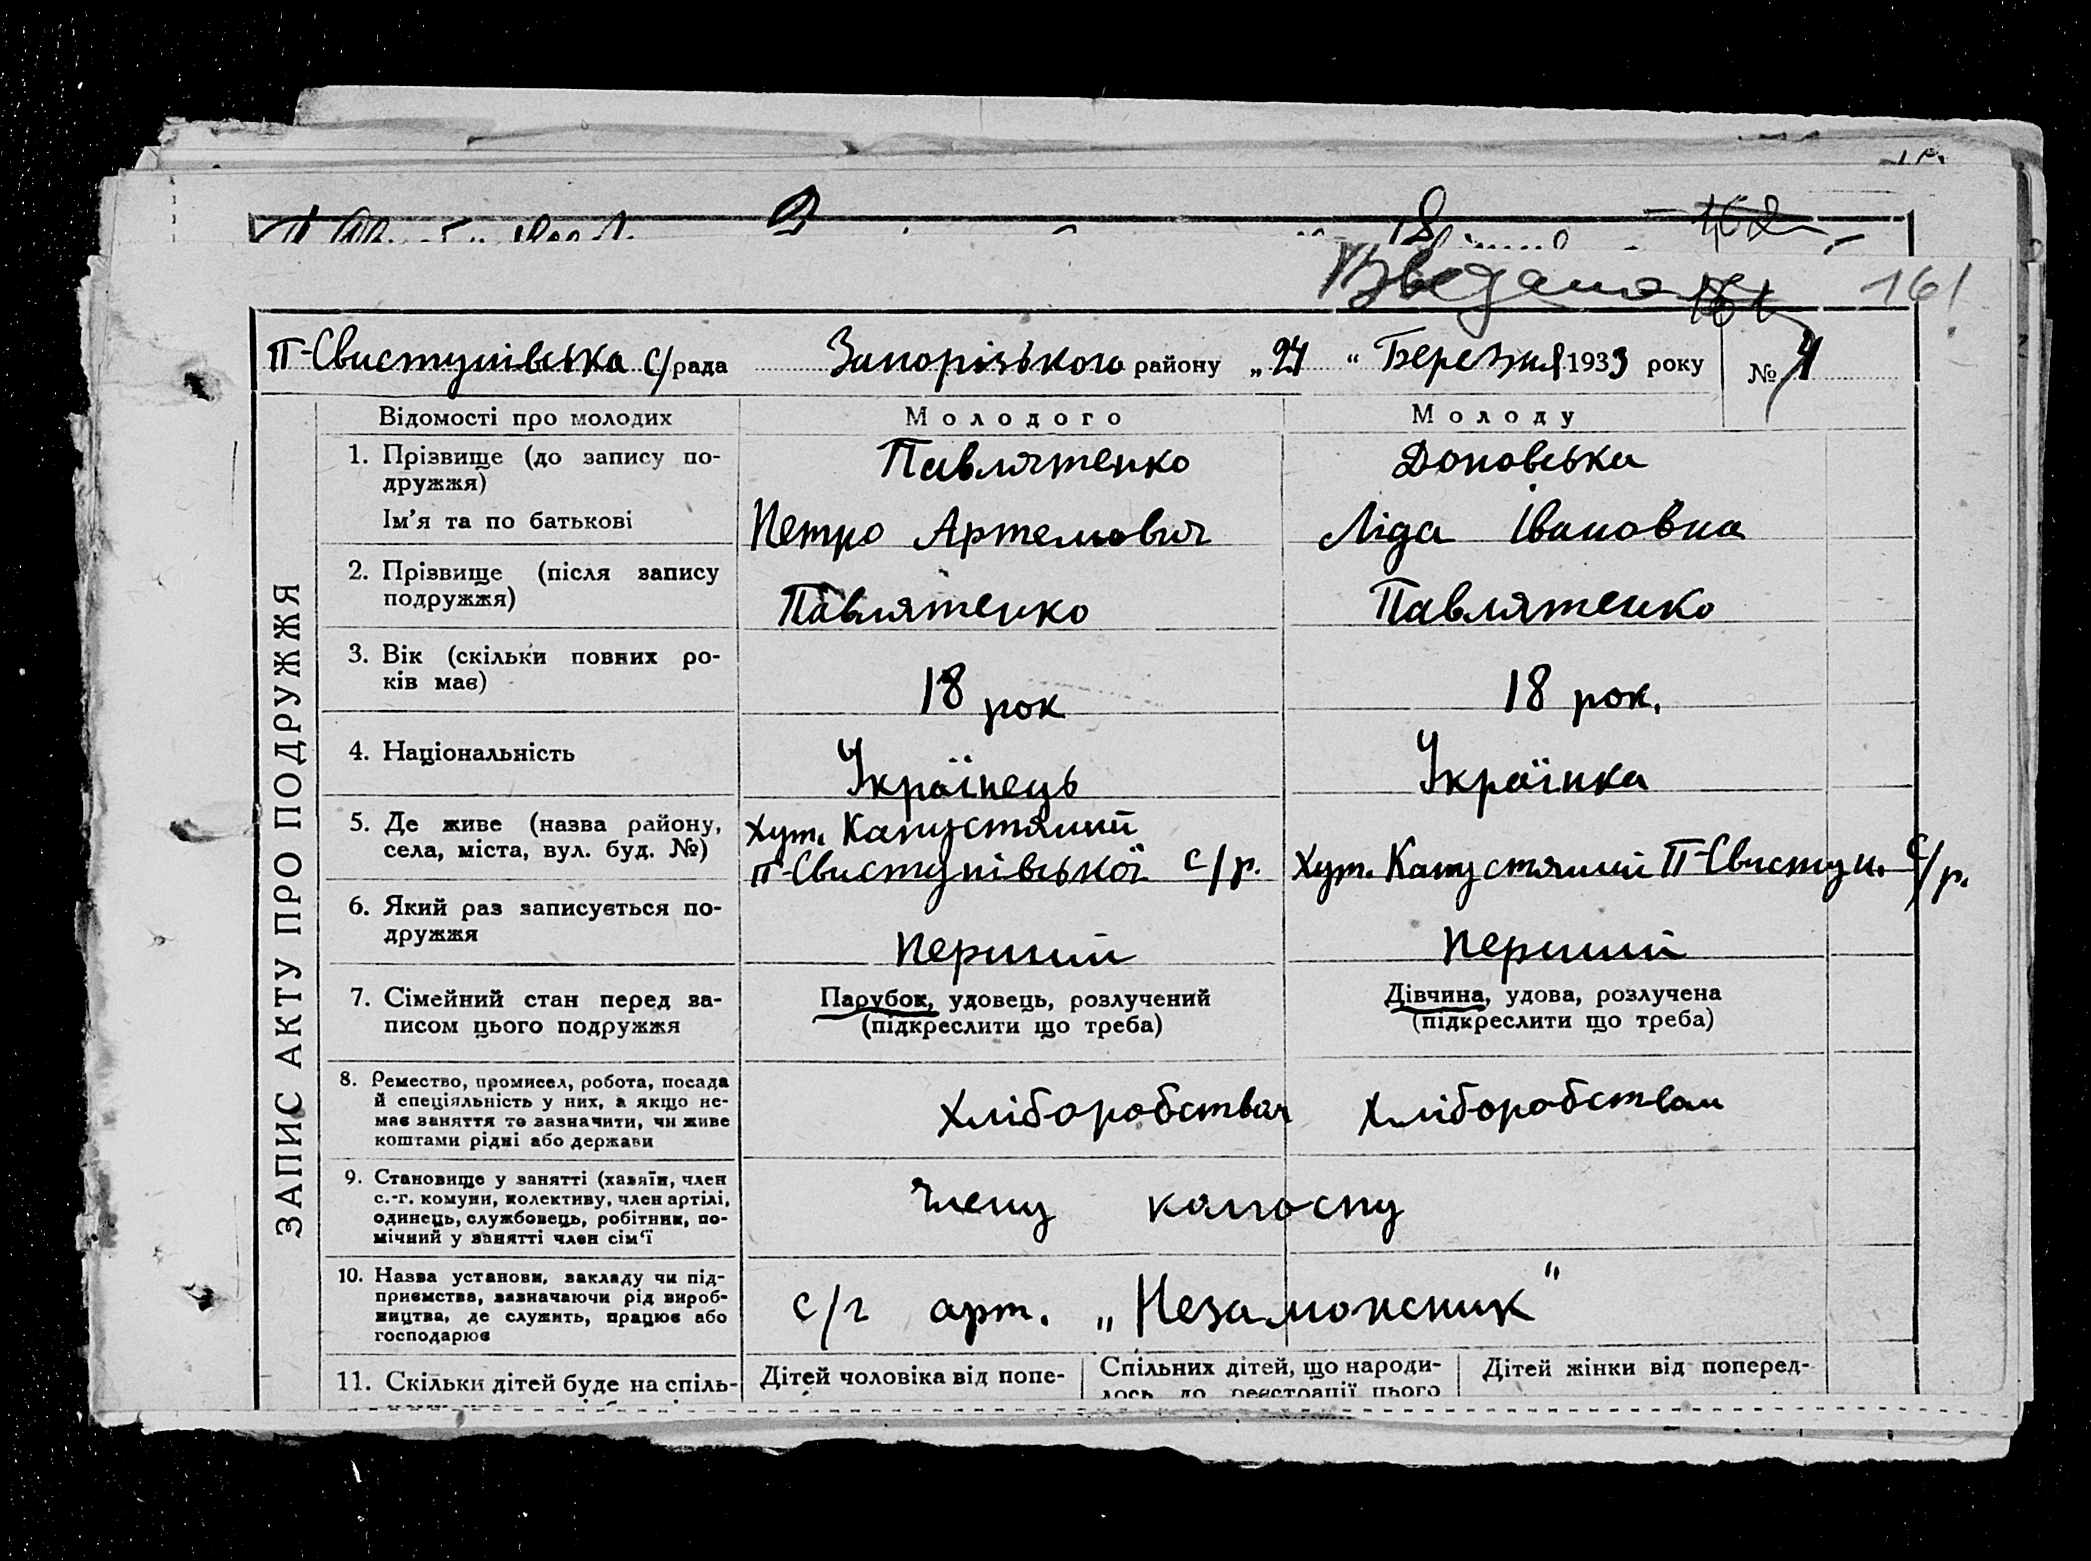 161
П-Свистунівська с/рада Запорізького району „24“ Березня 1933 року № 4
ЗАПИС АКТУ ПРО ПОДРУЖЖЯ
Відомості про молодих Молодого Молоду
1. Прізвище (до запису по-
дружжя) Павлятенко Доновська
Ім'я та по батькові Петро Артемович Ліда Івановна
2. Прізвище (після запису
подружжя) Павлятенко Павлятенко
3. Вік (скільки повних ро-
ків має) 18 рок 18 рок.
4. Національність Українець Українка
5. Де живе (назва району,
села, міста, вул. буд. №)
Хут. Капустяний
П-Свистунівської с/р. Хут. Капустяний П-Свистун. с/р.
6. Який раз записується по-
дружжя Перший Перший
7. Сімейний стан перед за-
писом цього подружжя
Парубок, удовець, розлучений
(підкреслити що треба)
Дівчина, удова, розлучена
(підкреслити що треба)
8. Ремество, промисел, робота, посада
й спеціяльність у них, а якщо не-
має заняття то зазначити, чи живе
коштами рідні або держави
Хліборобствам Хліборобствам
9. Становище у занятті (хазяїн, член
с.-г. комуни, колективу, член артілі,
одинець, службовець, робітник, по-
мічний у занятті член сім'ї
Члену колгоспу
10. Назва установи, закладу чи під-
приємства, зазначаючи рід вироб-
ництва, де служить, працює або
господарює
с/г арт. „Незаможник"
11. Скільки дітей буде на спіль-
Дітей чоловіка від попе-
Спільних дітей, що народи-
лось до реєстрації цього
Дітей жінки від поперед-